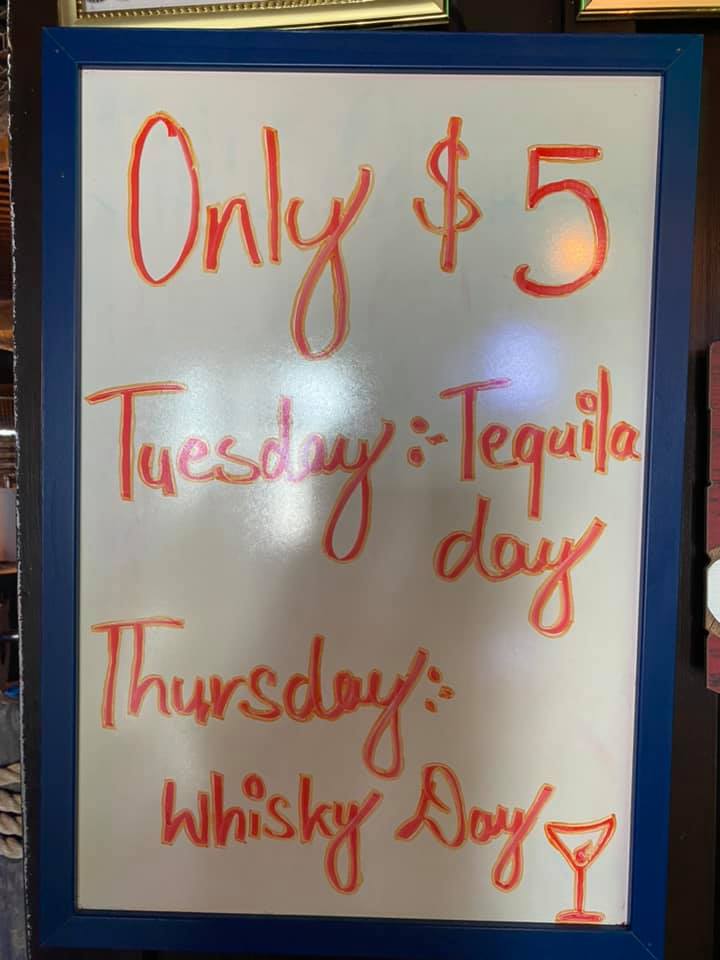 Only $5
Tuesday :- Tequila
day
Thursday :-
Whisky Day